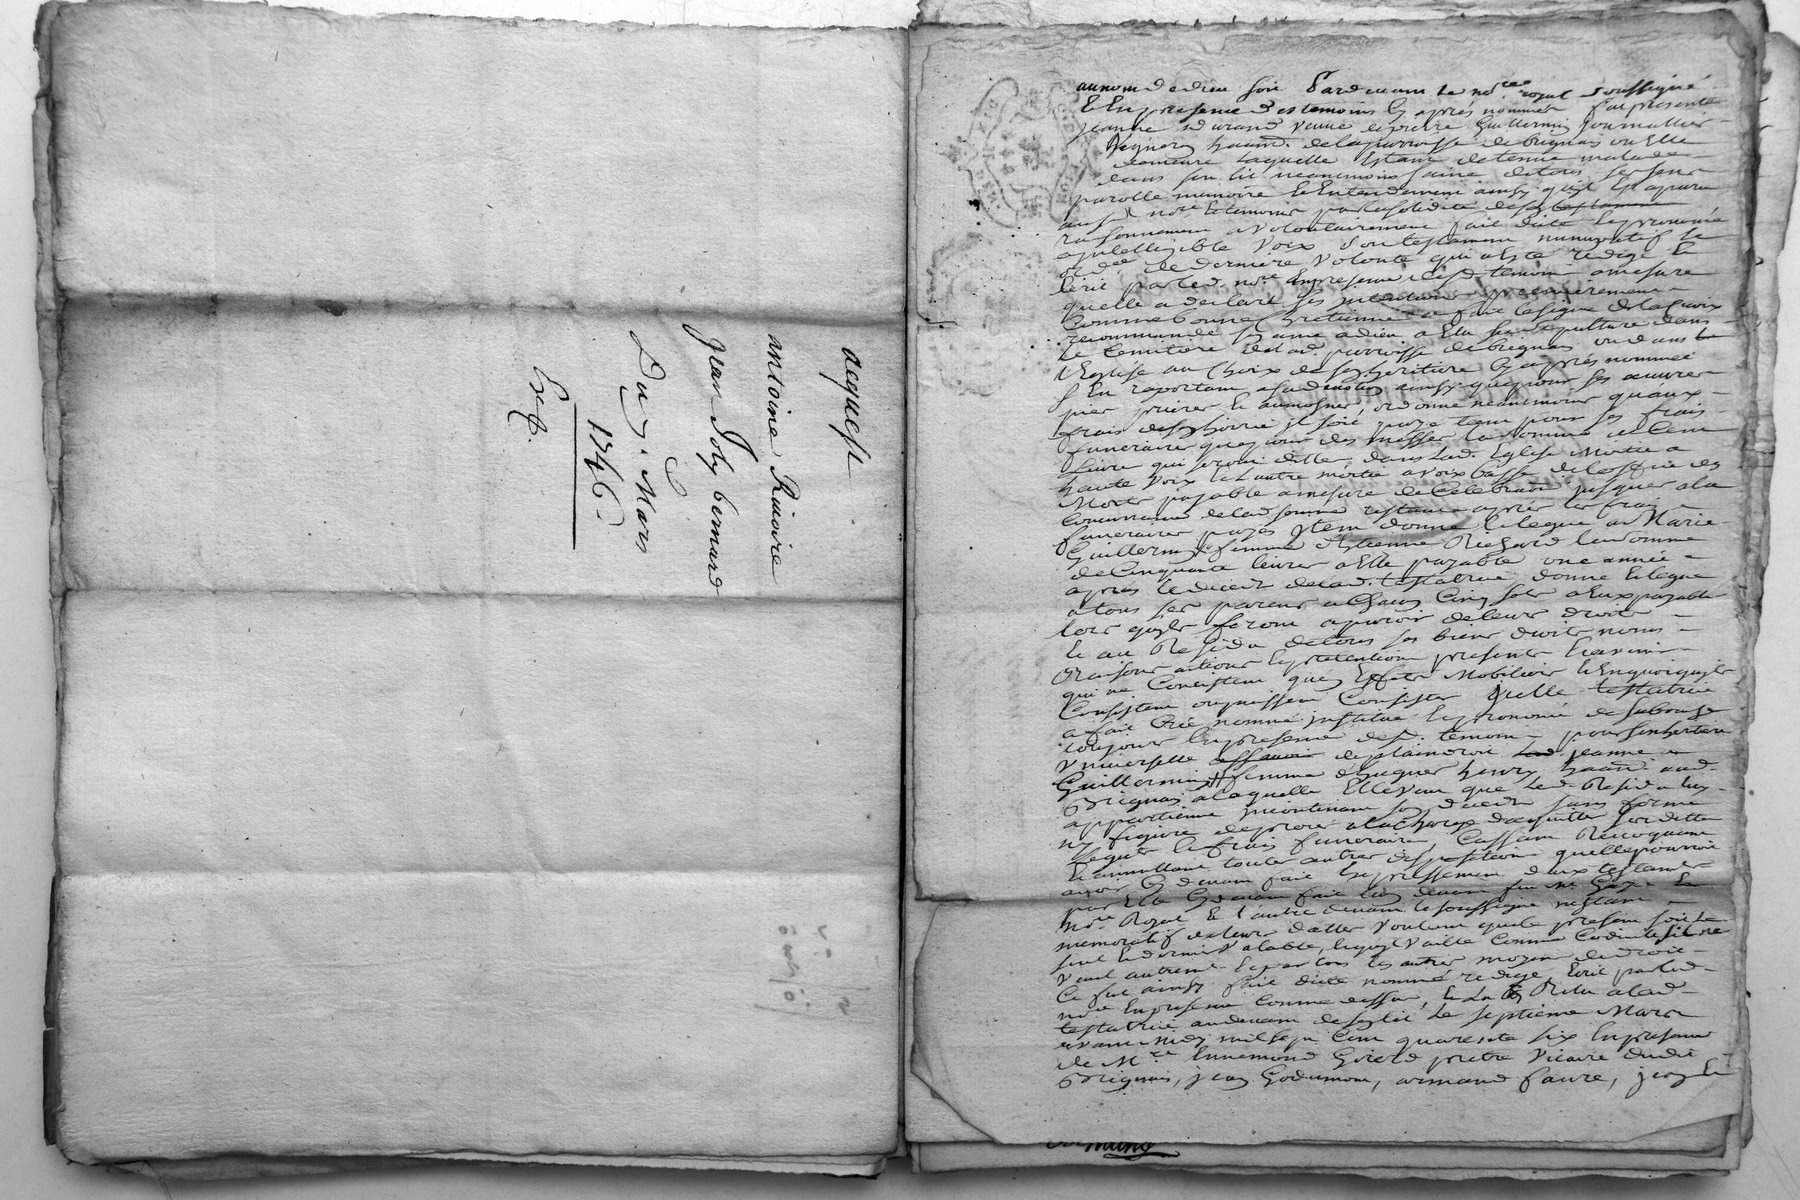 acquest
antoine Riuoire
jean Joly bernard
Du 7 Mars
1746
au nom de dieu soit Pardeuant le no.re royal soussigné
Et En presence des temoins cy aprés nommés fut presente
jeanne durand veuve de pierre Guillermin journallier
Vigneron habit. de la parroisse de brignais ou Elle
demeure laquelle Estant detenue malade
dans son lit neanmoins saine de tous ses sens
parolle memoire Et Entendement ainsy quil Est aparu
aud. no.re Et temoins par la solidité de son testament
raisonnement a volontairement fait dicté Et prononcé
a intelligible voix son testament nuncupatif Et
ord.ce de derniere volonté qui a Esté redigé Et
Ecrit par led. no.re En presence desd. temoins a mesure
quelle a declaré ses intentions premierement
Comme bonne Chretienne a fait le signe de la Croix
recommandé son ame a dieu a Elu sa sepulture dans
le Cemitiere de lad. parroisse de brignais ou dans
l'Eglise au Choix de son heritiere cy aprés nommée
S'En raportant a sa devotion ainsy que pour ses œuvres
pies prieres Et aumosnes, ordonne neanmoins quaux
frais de son hoirie il soit payé tant pour ses frais
funeraires que pour des messes la somme de Cent
livres qui seront dittes dans lad. Eglise Moitié a
haute voix Et l'autre moitié a voix basse de l'office des
Morts payable a mesure de Celebration jusques a la
Concurrance de la somme restante aprés les frais
funeraires payés Item donne Et legue a Marie
Guillermin femme d'Etienne Richard la somme
de Cinquante livres a Elle payable une année
aprés le decedz de lad. testatrice donne Et legue
a tous ses parens a Chacun Cinq sols a Eux payable
lors quils feront aparoir de leurs droits
Et au Residu de tous ses biens droits noms
Raisons actions Et pretentions presents Et avenir
qui ne Consistent quen Effets Mobiliers Et En quoi quils
Consistent ou puissent Consister icelle testatrice
a fait Créé nommé institué Et prononcé de sa bouche
toujours En presence desd. temoins pour son heritiere
Vniverselle de plain droit jeanne
Guillermin femme d'hugues henry habit. aud.
Brignais a laquelle Elle veut que led. Residu luy
appartienne incontinant son decedz sans forme
ny figure de procés a la Charge d'acquitter ses dettes
Legats Et frais funeraires, Cassant Revoquant
Et annullant toutes autres dispositions quelle pourroit
avoir cy devant fait Expressement deux testaments
par Elle cy devant fait l'un devant feu M.e
no.re Royal Et l'autre devant le soussigné n'estant
memoratif de leurs dattes voulant que le present soit Le
seul Et dernier valable, Et quil vaille Comme Codicile si ne
vaut autrement Et par tous les autres moyens de droit
Ce fut ainsy fait dicté nommé redigé Ecrit par led.
no.re En presence Comme dessus, Et Lu Et Relu a lad.
testatrice au devant de son lit Le septieme Mars
avant midy mil sept Cent quarente six En presence
de M.re Ennemond prestre Vicaire dudit
Brignais, jean Godumon, armand faure, jean